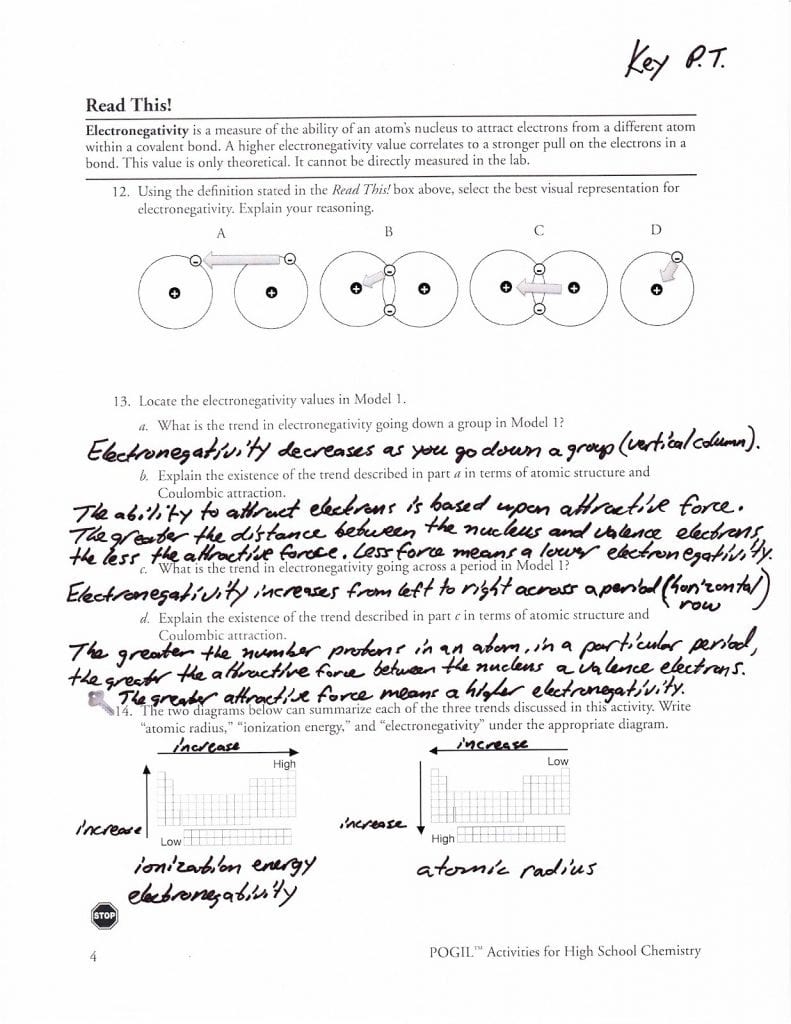 Key P.T.
Read This!
Electronegativity is a measure of the ability of an atom's nucleus to attract electrons from a different atom
within a covalent bond. A higher electronegativity value correlates to a stronger pull on the electrons in a
bond. This value is only theoretical. It cannot be directly measured in the lab.
12. Using the definition stated in the Read This! box above, select the best visual representation for
electronegativity. Explain your reasoning.
A B C D
13. Locate the electronegativity values in Model 1.
a. What is the trend in electronegativity going down a group in Model 1?
Electronegativity decreases as you go down a group (vertical column).
b. Explain the existence of the trend described in part a in terms of atomic structure and
Coulombic attraction.
The ability to attract electrons is based upon attractive force.
The greater the distance between the nucleus and valence electrons,
the less the attractive force. Less force means a lower electronegativity.
c. What is the trend in electronegativity going across a period in Model 1?
Electronegativity increases from left to right across a period (horizontal
row)
d. Explain the existence of the trend described in part c in terms of atomic structure and
Coulombic attraction.
The greater the number protons in an atom, in a particular period,
the greater the attractive force between the nucleus a valence electrons.
The greater attractive force means a higher electronegativity.
14. The two diagrams below can summarize each of the three trends discussed in this activity. Write
"atomic radius," "ionization energy," and "electronegativity" under the appropriate diagram.
increase
High
increase
Low
ionization energy
electronegativity
increase
Low
increase
High
atomic radius
STOP
4
POGIL™ Activities for High School Chemistry